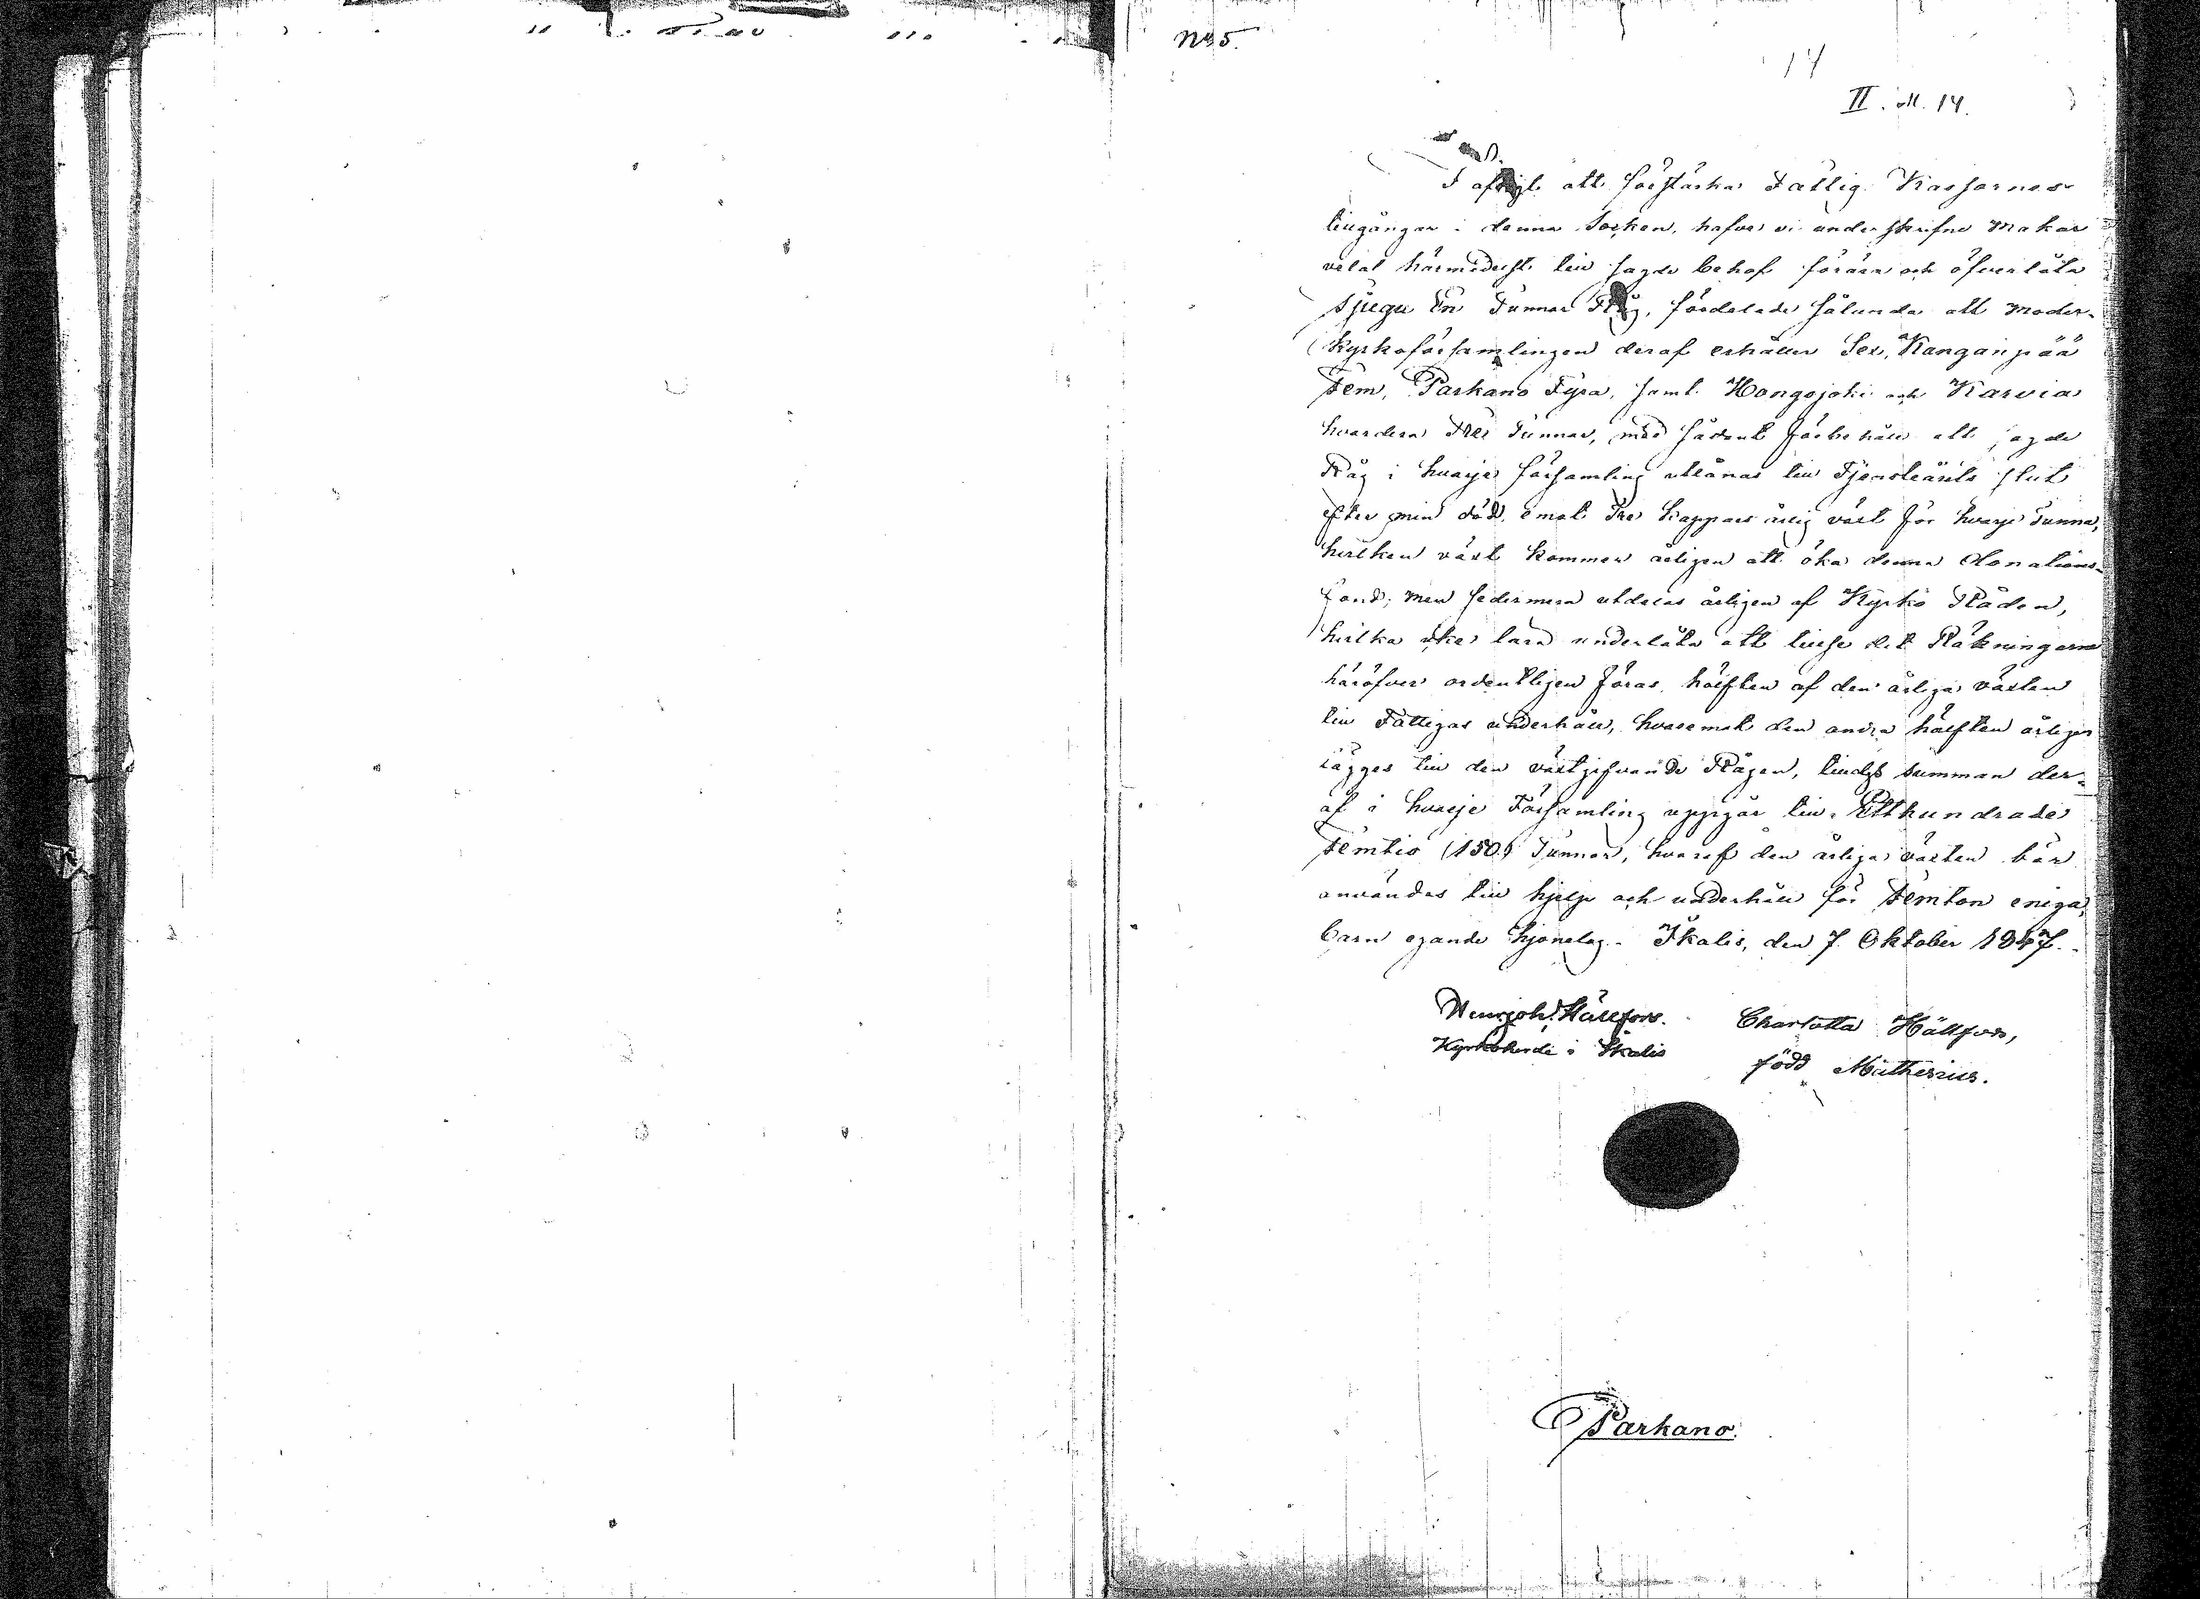 No 5.
14
II. M. 14.
I afsigt att förstärka Fattig Kassornes
tillgångar i denna Socken, hafve vi underskrifne Makar
velat härmedelst till sagde behof förära och öfverlåta
Tjugu En Tunnor Råg, fördelade sålunda att Moder-
kyrkoförsamlingen deraf erhåller Sex, Kangänpää
Fem, Parkano Fyra, samt Hongojoki och Karvia
hvardera Tre Tunnor, med sådant förbehåll att sagde
Råg i hvarje församling utlånas till Tjensteårets slut
efter min död, emot Tre Kappars årlig växt för hvarje Tunna,
hvilken växt kommer årligen att öka denna donations-
fond; men sedermera utdelas årligen af Kyrko Råden,
hvilka icke lära underlåta att tillse det Räkningarne
häröfver ordentligen föras, hälften af den årliga växten
till Fattigas underhåll, hvaremot den andra hälften årligen
lägges till den växtgifvande Rågen, tilldess summan der-
af i hvarje Församling uppgår till Etthundrade
Femtio (150.) Tunnor, hvaraf den årliga växten bör
användas till hjelp och underhåll för Femton eniga,
barn egande hjonelag. Ikalis, den 7. Oktober 1847.
Henr. Joh. Hällfors. Charlotta Hällfors,
Kyrkoherde i Ikalis född Mathesius.
Parkano.